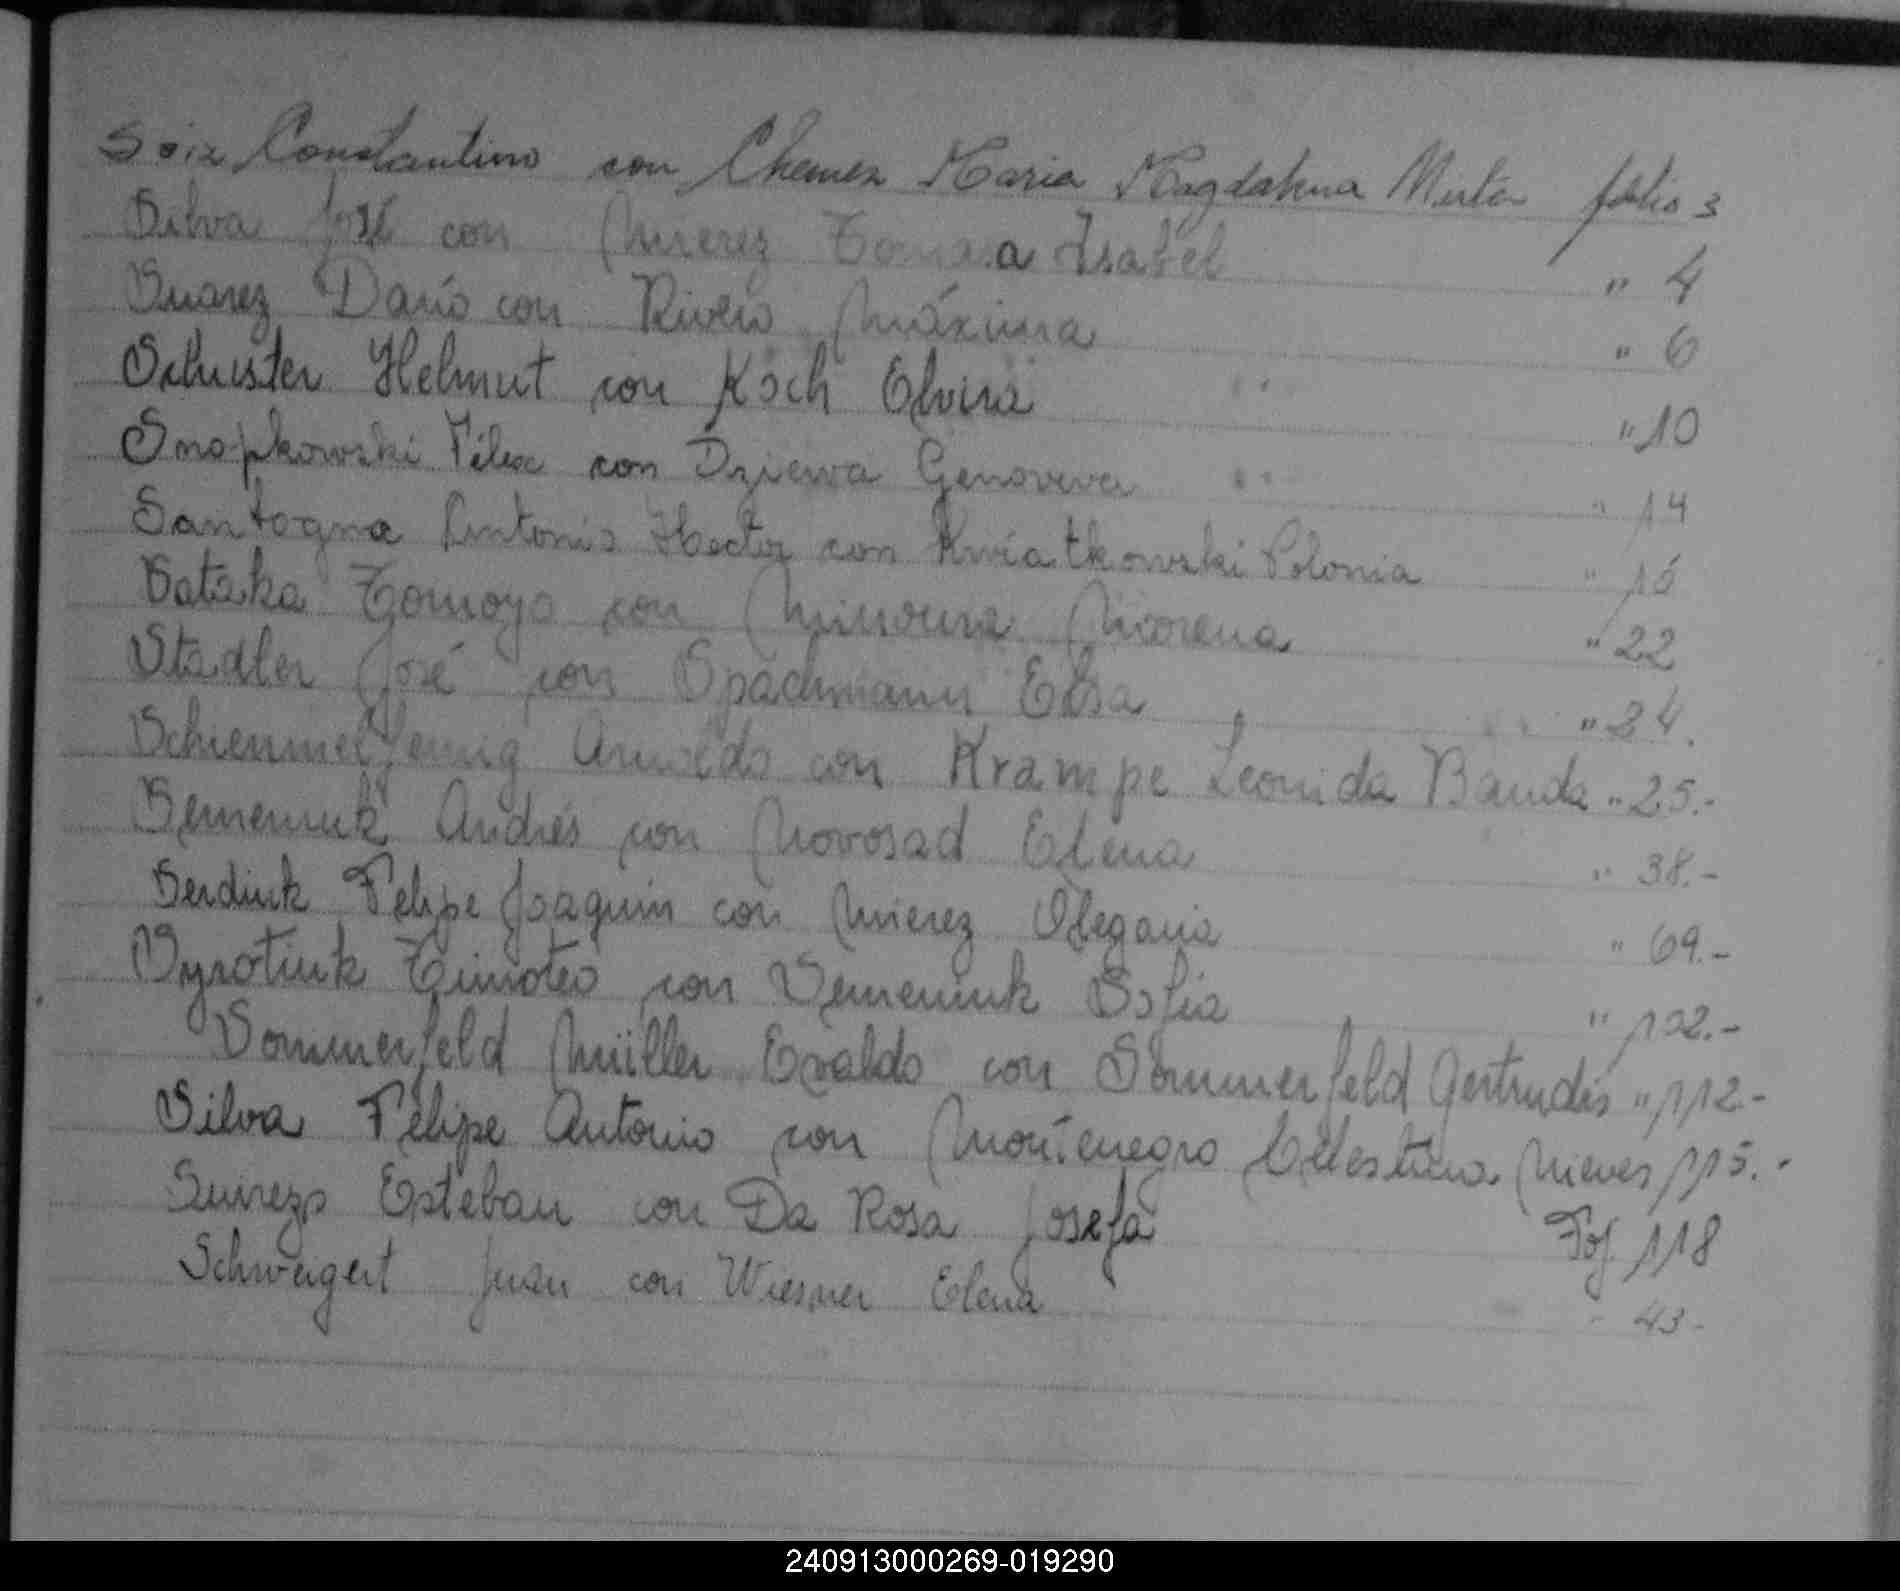 Soiz Constantino con Chemez Maria Magdalena Mirta folio 3
Silva José con Mierez Tomasa Isabel " 4
Suarez Darío con Rivero Máxima " 6
Schuster Helmut con Koch Elvira " 10
Snopkowski Félix con Dziewa Genoveva " 14
Santogna Antonio Hector con Kwiatkowski Polonia " 15
Sataka Tomoyo con Morena " 22
Stadler José con Spachmann Elsa " 24.
Arnoldo con Krampe Leonida Banda " 25.-
Semeniuk Andrés con Novosad Elena " 38.-
Serdiuk Felipe Joaquin con Mierez Olegaria " 69.-
Syrotiuk Timoteo con Semeniuk Sofia " 102.-
Sommerfeld Müller Evaldo con Sommerfeld Gertrudis " 112.-
Silva Felipe Antonio con Montenegro Celestina Nieves 115.-
Esteban con Da Rosa Josefa Fol. 118
Schweigert Juan con Wiesner Elena - 43 -
240913000269-019290